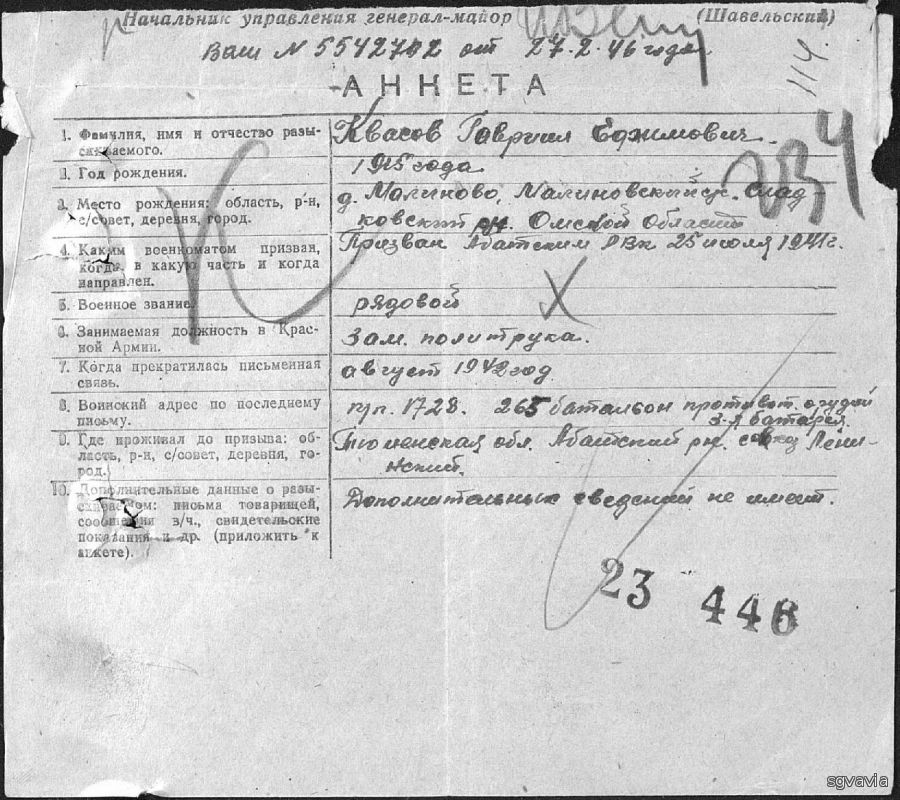 Начальник управления генерал-майор (Шавельский)
Ваш N 5542742 от 27.2.46 года.
114.
АНКЕТА
1. Фамилия, имя и отчество разы-
скиваемого.
Квасов Гавриил Ефимович.
234
2. Год рождения.
1915 года
3. Место рождения: область, р-н,
с/совет, деревня, город.
д. Малиново, Малиновский с/с. Слад-
ковский рн. Омской Области
4. Каким военкоматом призван,
когда, в какую часть и когда
направлен.
Призван Абатским РВк 25 июля 1941г.
5. Военное звание.
рядовой
6. Занимаемая должность в Крас-
ной Армии.
Зам. политрука.
7. Когда прекратилась письменная
связь.
август 1942 год
8. Воинский адрес по последнему
письму.
п/п. 1728. 265 батальон противот. орудий
3-я батарея.
9. Где проживал до призыва: об-
ласть, р-н, с/совет, деревня, го-
род.
Тюменская обл. Абатский рн. совхоз Лени-
нский.
10. Дополнительные данные о разы-
скиваемом: письма товарищей,
сообщения в/ч., свидетельские
показания и др. (приложить к
анкете).
Дополнительных сведений не имеет.
23 446
sgvavia